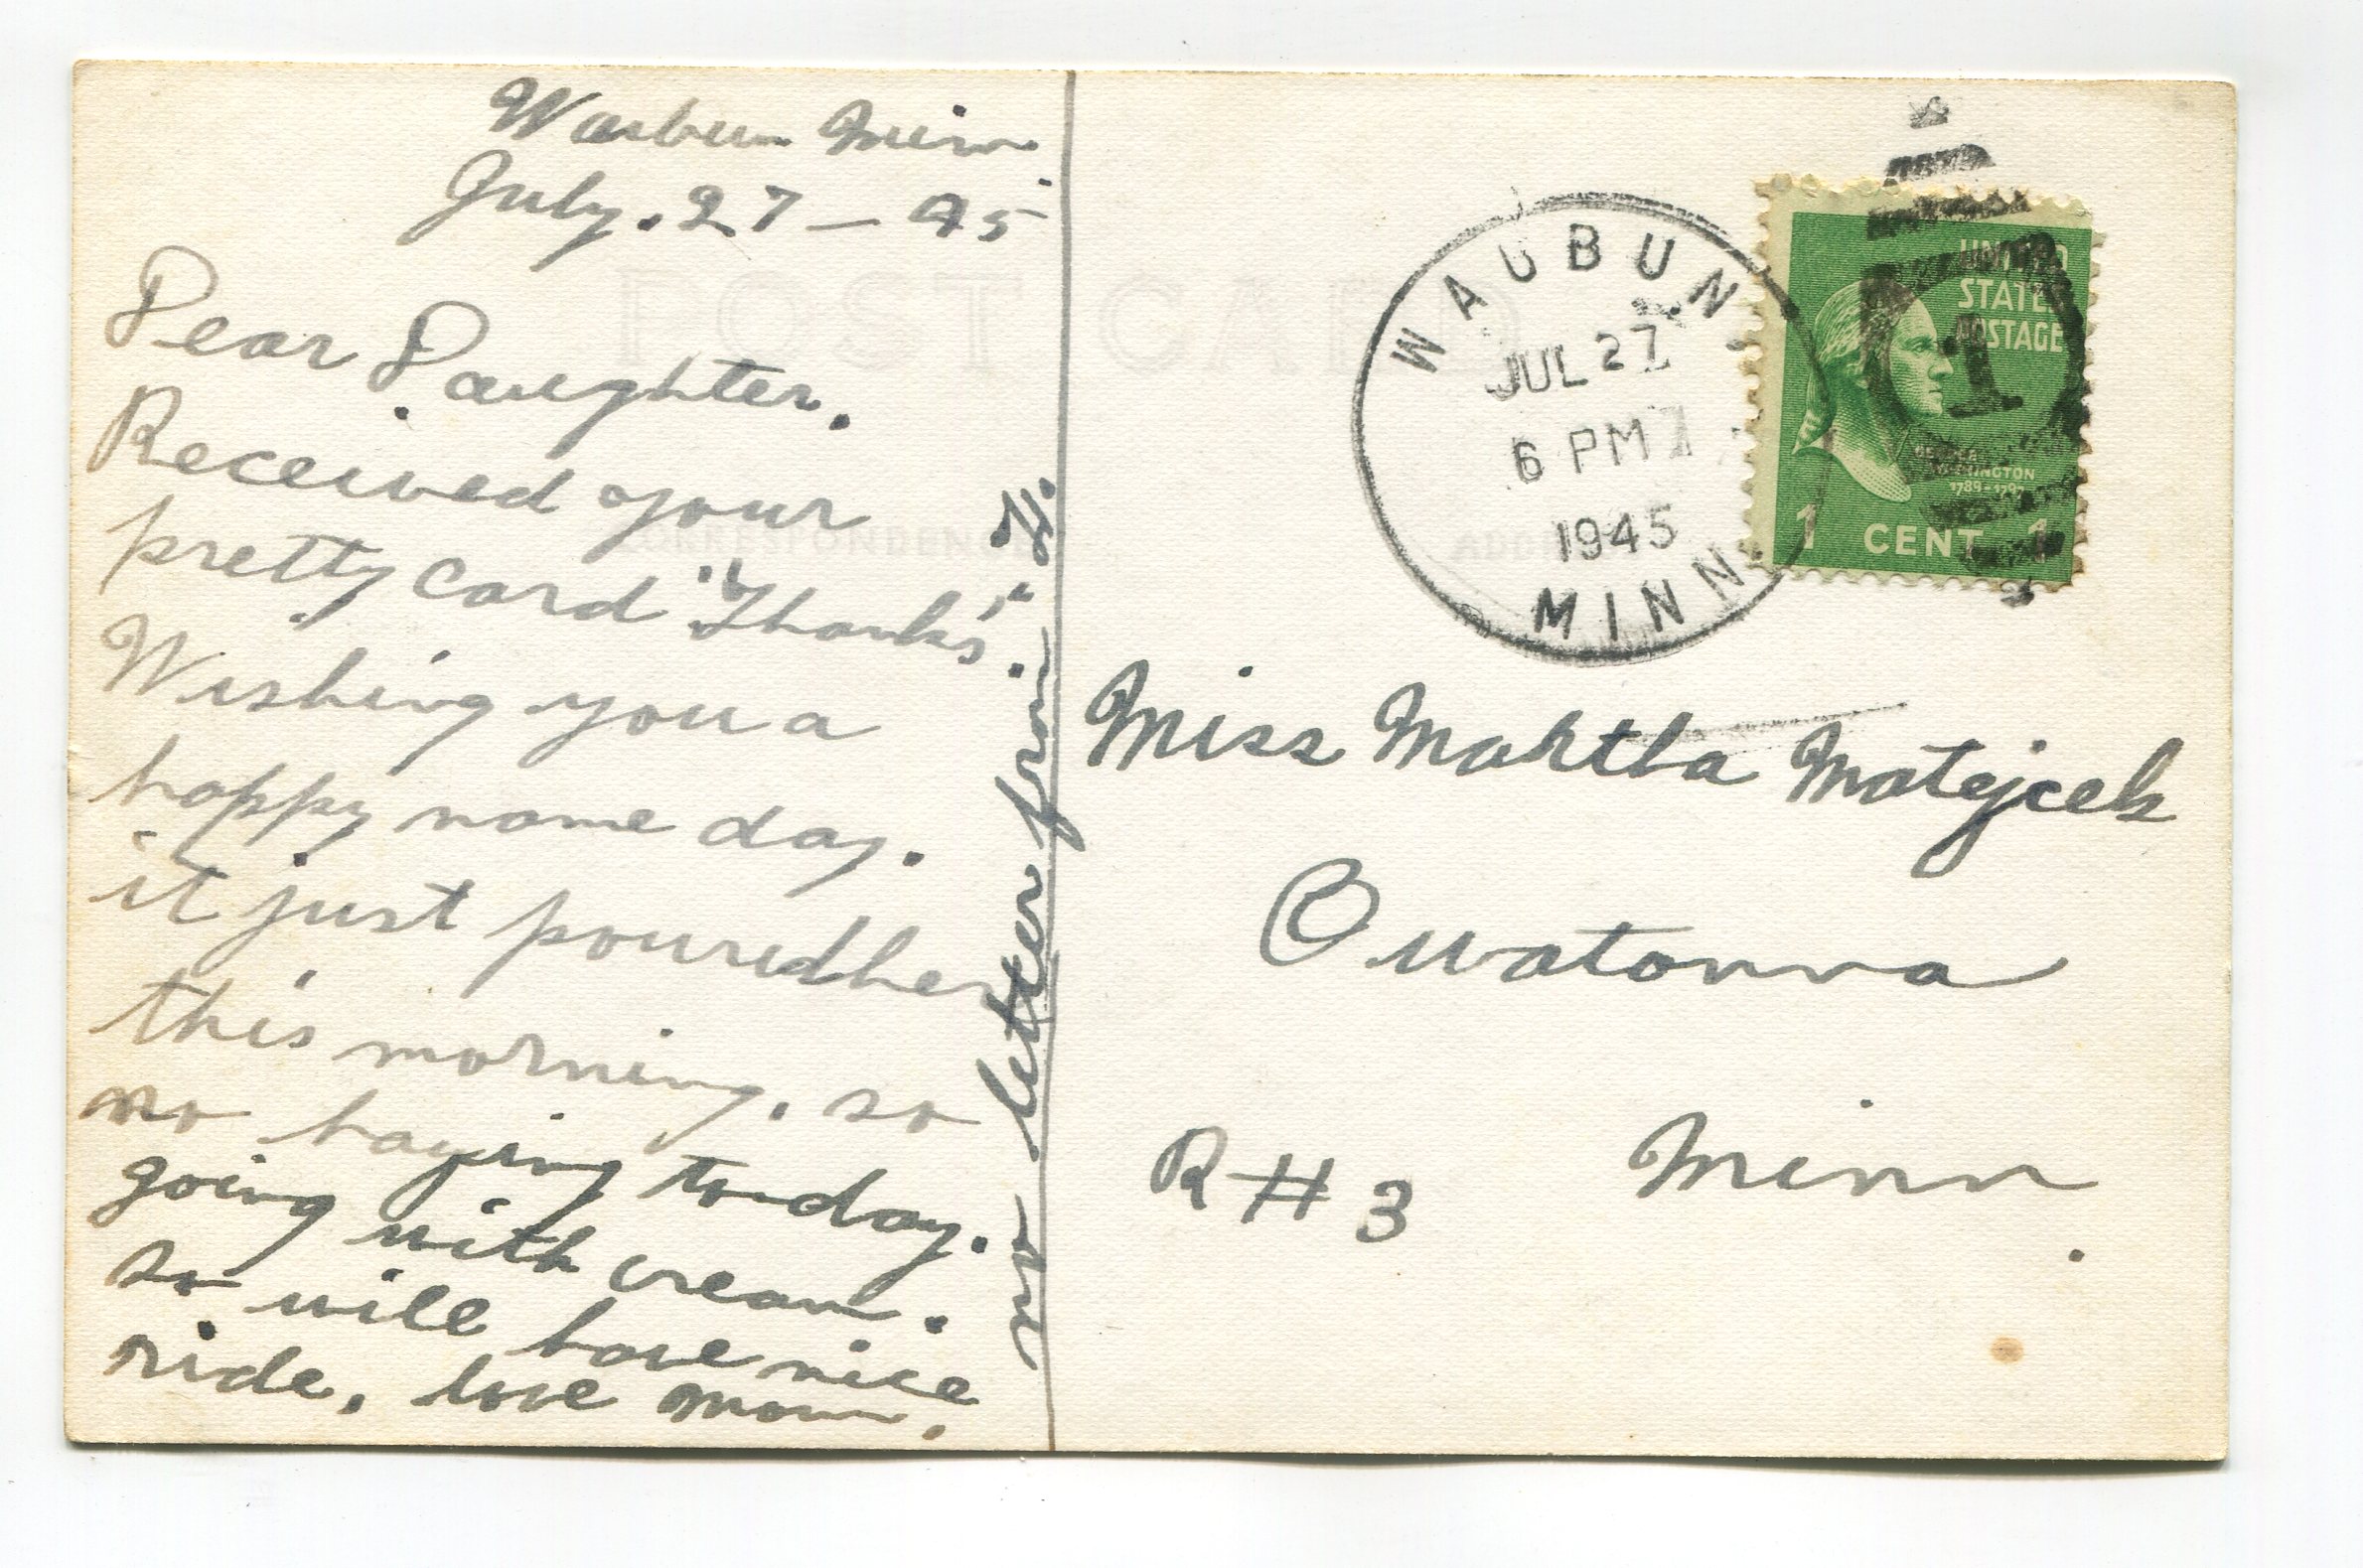 Waubun Minn.
July. 27 – 45
Dear Daughter.
Received your
pretty card "Thanks".
Wishing you a
happy name day.
it just poured her
this morning. so
no haying to-day.
going with cream.
so will have nice
ride. love mom.
no letter from H.
POST CARD
CORRESPONDENCE
WAUBUN,
JUL 27
6 PM
1945
MINN.
UNITED
STATES
POSTAGE
1
GEORGE
WASHINGTON
1789-1797
1 CENT 1
Miss Mahtla Matejcek
Owatonna
R # 3 Minn.